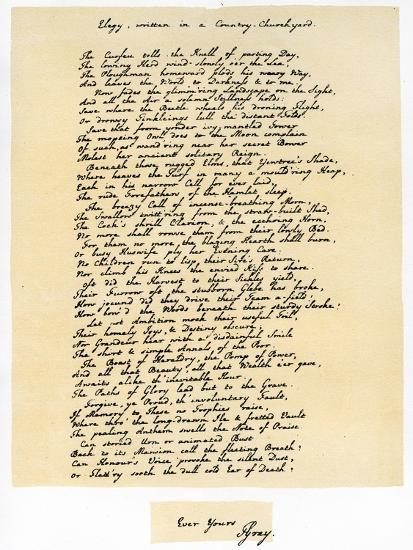 Elegy, written in a Country-Churchyard.
The Curfeu tolls the Knell of parting Day,
The lowing Herd wind slowly o'er the Lea,
The Ploughman homeward plods his weary Way,
And leaves the World to Darkness & to me.
Now fades the glimm'ring Landscape on the Sight,
And all the Air a solemn Stillness holds;
Save where the Beetle wheels his droning Flight,
Or drowsy Tinklings lull the distant Folds.
Save that from yonder ivy-mantled Tower
The mopeing Owl does to the Moon complain
Of such, as wand'ring near her secret Bower
Molest her ancient solitary Reign.
Beneath those rugged Elms, that Yewtree's Shade,
Where heaves the Turf in many a mould'ring Heap,
Each in his narrow Cell for ever laid,
The rude Forefathers of the Hamlet sleep.
The breezy Call of incense-breathing Morn,
The Swallow twitt'ring from the straw-built Shed,
The Cock's shrill Clarion, & the ecchoing Horn,
No more shall rouse them from their lowly Bed.
For them no more the blazing Hearth shall burn,
Or busy Huswife ply her Evening Care:
No Children run to lisp their Sire's Return,
Nor climb his Knees the envied Kiss to share.
Oft did the Harvest to their Sickle yield,
Their Furrow oft the stubborn Glebe has broke,
How jocund did they drive their Team a-field!
How bow'd the Woods beneath their sturdy Stroke!
Let not Ambition mock their useful Toil,
Their homely Joys, & Destiny obscure;
Nor Grandeur hear with a disdainful Smile
The short & simple Annals of the Poor.
The Boast of Heraldry, the Pomp of Power,
And all that Beauty, all that Wealth e'er gave,
Awaits alike th' inevitable Hour.
The Paths of Glory lead but to the Grave.
Forgive, ye Proud, th' involuntary Fault,
If Memory to These no Trophies raise,
Where thro' the long-drawn Ile & fretted Vault
The pealing Anthem swells the Note of Praise
Can storied Urn or animated Bust
Back to its Mansion call the fleeting Breath?
Can Honour's Voice provoke the silent Dust,
Or Flatt'ry sooth the dull cold Ear of Death?
Ever Yours
TGray.